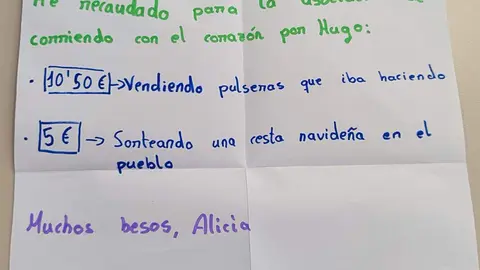 He recaudado para la
corriendo con el corazón por Hugo:
· 10'50 € → Vendiendo pulseras que iba haciendo
· 5 € → Sorteando una cesta navideña en el
pueblo
Muchos besos, Alicia